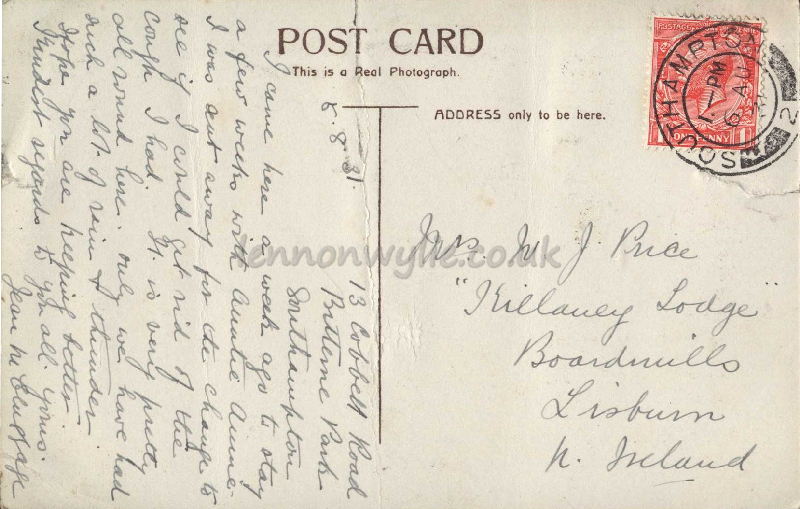 POST CARD
This is a Real Photograph.
ADDRESS only to be here.
POSTAGE
ONE PENNY
SOUTHAMPTON
7 - PM
6 AU
2
8. 8. 31
13 Cobbett Road
Bitterne Park
Southampton
I came here a week ago to stay
a few weeks with Auntie Annie
I was sent away for the change to
see if I could get rid of the
cough I had. It is very pretty
all round here. only we have had
such a lot of rain & thunder.
Hope you are keeping better.
Kindest regards to you all. Yours.
Jean
Mrs. W J Price
"Killaney Lodge"
Boardmills
Lisburn
N. Ireland
lennonwylie.co.uk